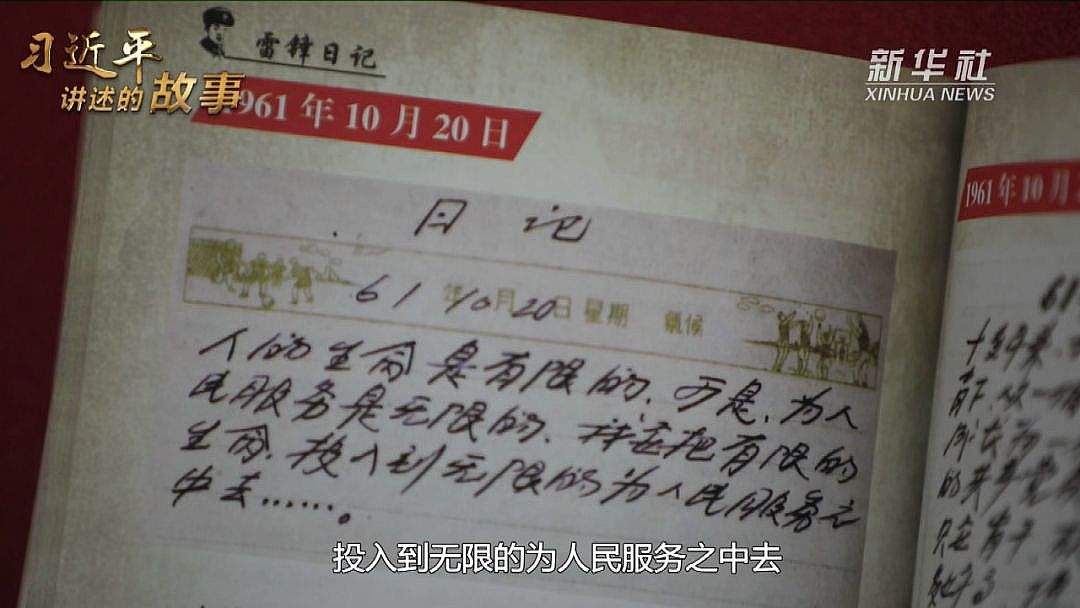 习近平
讲述的故事
新华社
XINHUA NEWS
雷锋日记
1961年10月20日
日记
61年10月20日 星期 氣候
人的生命是有限的、可是、为人
民服务是无限的、我要把有限的
生命、投入到无限的为人民服务之
中去……。
1961年10月
61
十年来
投入到无限的为人民服务之中去